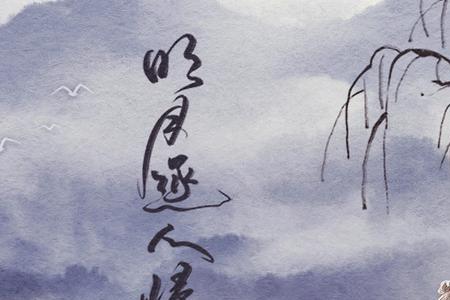 明月逐人